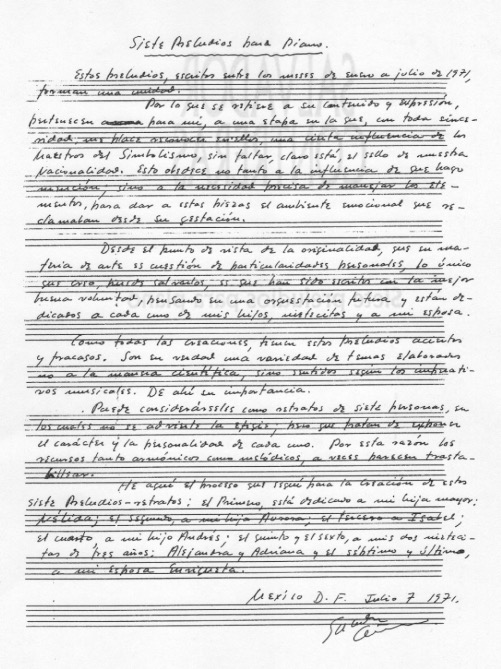 Siete Preludios para Piano.
Estos preludios, escritos entre los meses de enero a julio de 1971,
forman una unidad.
Por lo que se refiere a su contenido y expresión,
pertenecen para mí, a una etapa en la que, con toda since-
ridad, me place reconocer en ellos, una cierta influencia de los
Maestros del Simbolismo, sin faltar, claro está, el sello de nuestra
Nacionalidad. Esto obedece no tanto a la influencia de que hago
mención, sino a la necesidad precisa de manejar los ele-
mentos, para dar a estas piezas el ambiente emocional que re-
clamaban desde su gestación.
Desde el punto de vista de la originalidad, que en ma-
teria de arte es cuestión de particularidades personales, lo único
que creo, puede salvarlos, es que han sido escritos con la mejor
buena voluntad, pensando en una orquestación futura, y están de-
dicados a cada uno de mis hijos, nietecitos y a mi esposa.
Como todas las creaciones, tienen estos preludios aciertos
y fracasos. Son en verdad una variedad de temas elaborados
no a la manera científica, sino sentidos según los imperati-
vos musicales. De ahí su importancia.
Puede considerárseles como retratos de siete personas, en
los cuales no se advierte la efigie; pero que tratan de exponer
el carácter y la personalidad de cada uno. Por esta razón los
recursos tanto armónicos como melódicos, a veces parecen trasta-
billar.
He aquí el proceso que seguí para la creación de estos
siete Preludios-retratos: el Primero, está dedicado a mi hija mayor:
Nélida; el segundo, a mi hija Aurora; el tercero a Isabel;
el cuarto, a mi hijo Andrés; el quinto y el sexto, a mis dos nieteci-
tas de tres años: Alejandra y Adriana y el séptimo y último,
a mi esposa Enriqueta.
Mexico D. F. Julio 7 1971.